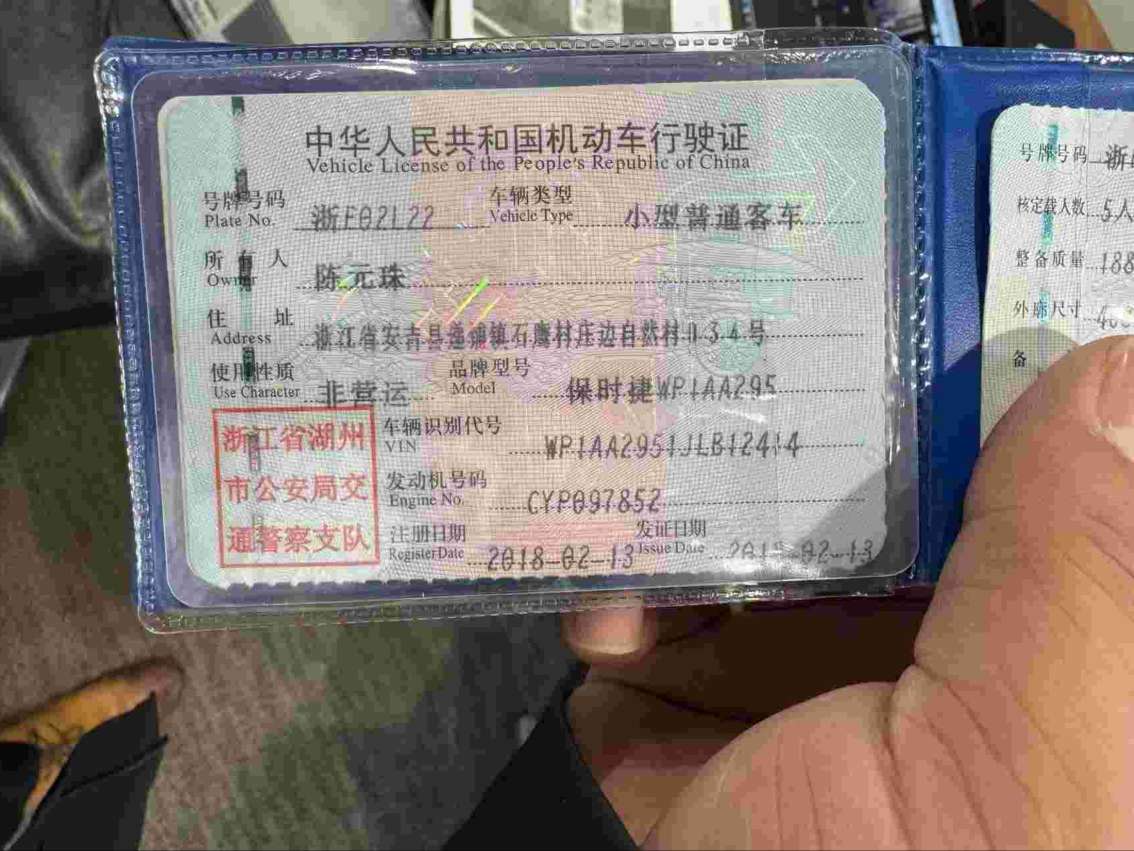 中华人民共和国机动车行驶证
Vehicle License of the People's Republic of China
号牌号码 Plate No. 浙F02L22 车辆类型 Vehicle Type 小型普通客车
所有人 Owner 陈元珠
住址 Address 浙江省安吉县递铺镇石鹰村庄边自然村034号
使用性质 Use Character 非营运 品牌型号 Model 保时捷WP1AA295
车辆识别代号 VIN WP1AA2951JLB12414
发动机号码 Engine No. CYP097852
注册日期 Register Date 2018-02-13 发证日期 Issue Date 2018-02-13
浙江省湖州
市公安局交
通警察支队
号牌号码 浙
核定载人数 5人
整备质量 188
外廓尺寸
备